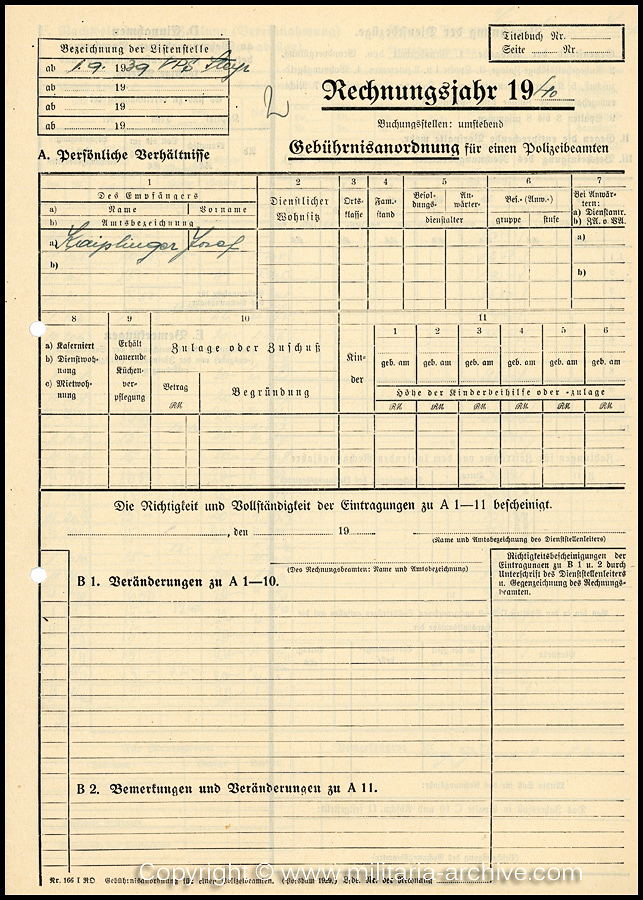 Bezeichnung der Listenstelle
ab 1.9. 1939 VPß Steyr
ab 19
ab 19
ab 19
Titelbuch Nr.
Seite Nr.
2
Rechnungsjahr 1940
Buchungsstellen: umstehend
Gebührnisanordnung für einen Polizeibeamten
A. Persönliche Verhältnisse
1 2 3 4 5 6 7
Des Empfängers
a) Name Vorname
b) Amtsbezeichnung
Dienstlicher Wohnsitz
Orts-klasse
Fam.-stand
Besol-dungs- An-wärter-
dienstalter
Bes.- (Anw.-)
gruppe stufe
Bei Anwär-
tern:
a) Dienstantr.
b) ZA. o. VA.
a) Kaiplinger Josef
b)
a)
b)
8 9 10 11
a) Kaserniert
b) Dienstwoh-
nung
c) Mietwoh-
nung
Erhält
dauernde
Küchen-
ver-
pflegung
Zulage oder Zuschuß
Betrag
RM
Begründung
Kin-
der
1 2 3 4 5 6
geb. am geb. am geb. am geb. am geb. am geb. am
Höhe der Kinderbeihilfe oder -zulage
RM RM RM RM RM RM
Die Richtigkeit und Vollständigkeit der Eintragungen zu A 1—11 bescheinigt.
, den 19
(Name und Amtsbezeichnung des Dienststellenleiters)
(Des Rechnungsbeamten: Name und Amtsbezeichnung)
B 1. Veränderungen zu A 1—10.
Richtigkeitsbescheinigungen der
Eintragungen zu B 1 u. 2 durch
Unterschrift des Dienststellenleiters
u. Gegenzeichnung des Rechnungs-
beamten.
B 2. Bemerkungen und Veränderungen zu A 11.
Nr. 166 I RO Gebührnisanordnung für einen Polizeibeamten. (Potsdam 1939.) Lfde. Nr. der Rechnung
Copyright © www.militaria-archive.com